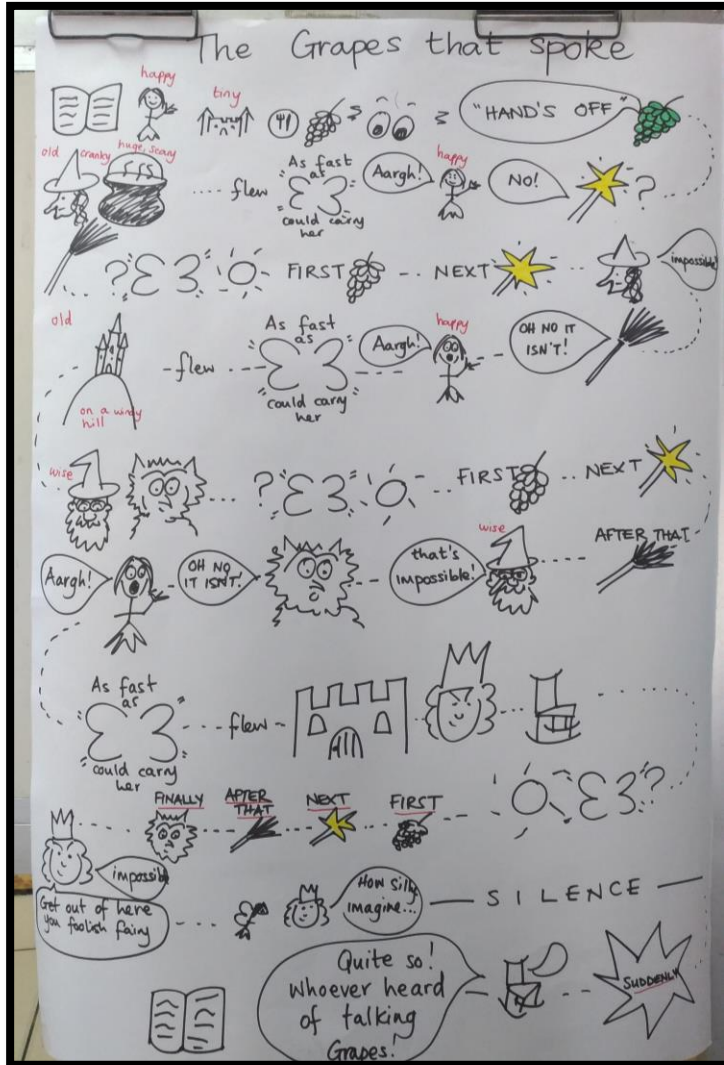 The Grapes that spoke
happy
tiny
"HAND'S OFF"
old cranky
huge, scary
flew
As fast
at
could carry
her
Aargh!
happy
No!
?
? FIRST NEXT
impossible!
old
on a windy
hill
flew
As fast
as
could carry
her
Aargh!
happy
OH NO IT
ISN'T!
wise
? FIRST NEXT
AFTER THAT
wise
that's
impossible!
OH NO
IT ISN'T!
Aargh!
As fast
as
could carry
her
flew
?
FIRST
NEXT
AFTER
THAT
FINALLY
impossible
Get out of here
you foolish fairy
How silly
imagine...
SILENCE
SUDDENLY
Quite so!
Whoever heard
of talking
Grapes!